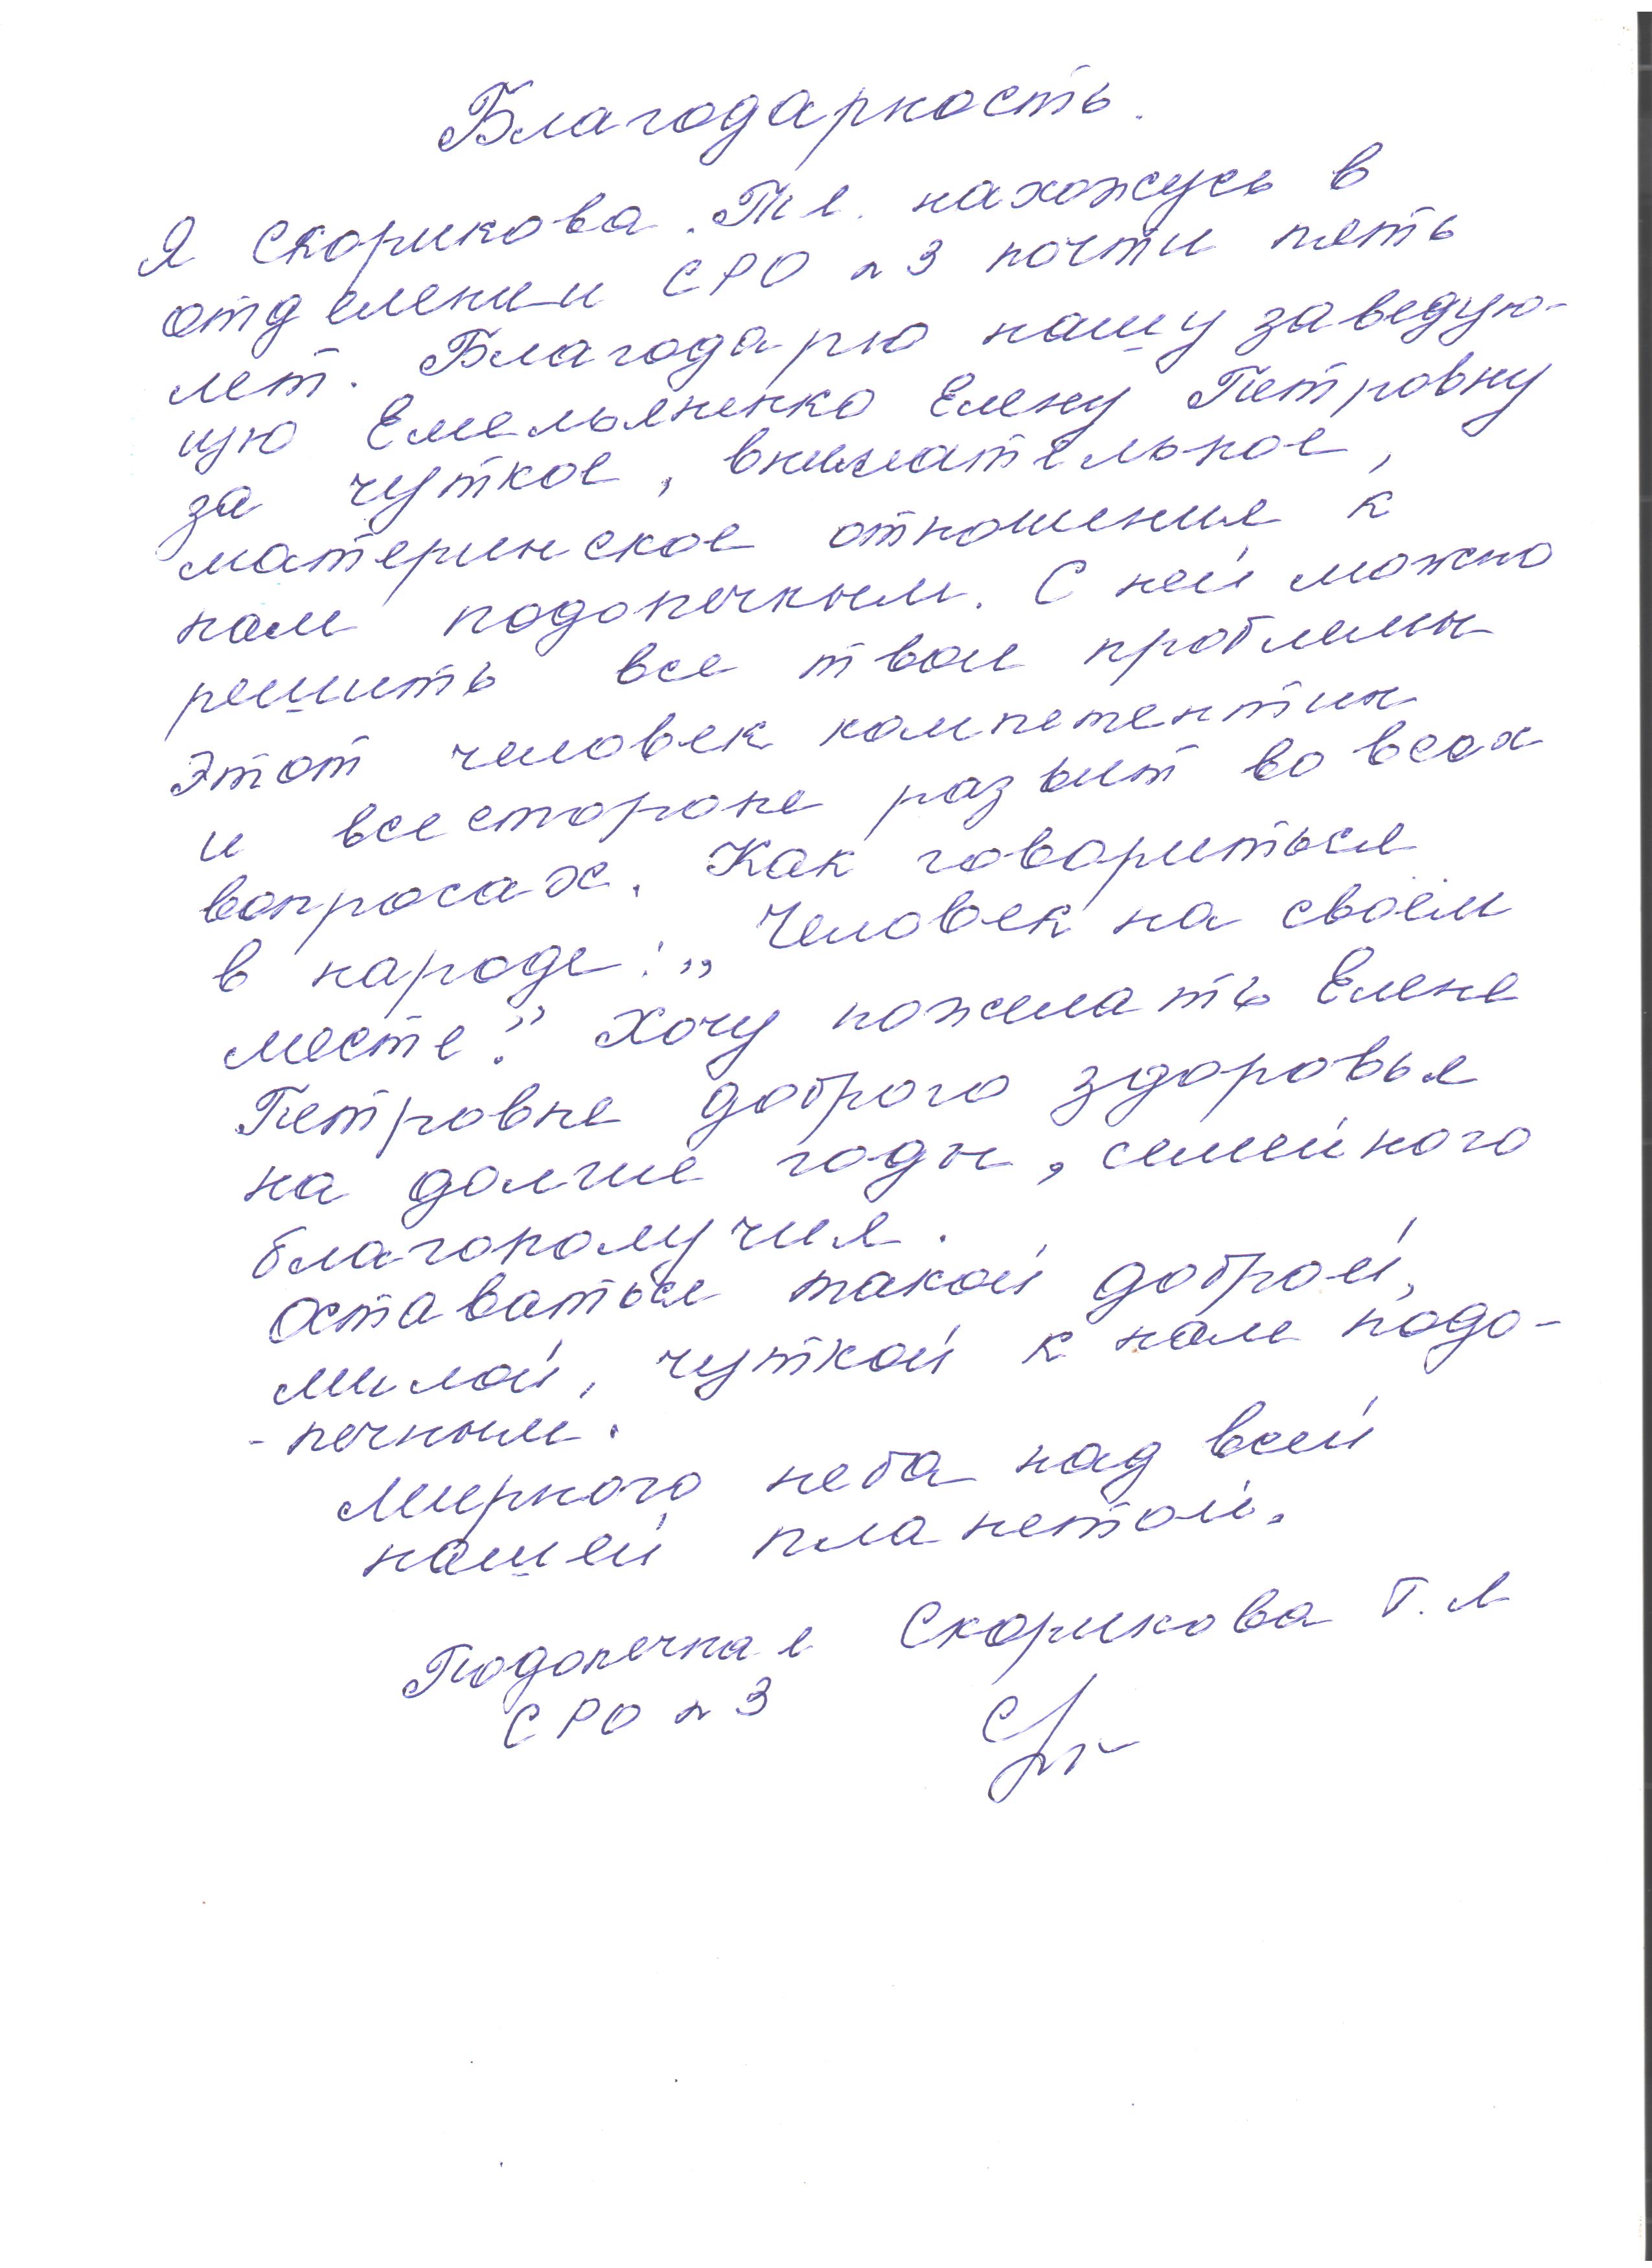 Благодарность.
Я Скорикова. Т.Л. нахожусь в
отделении СРО № 3 почти пять
лет. Благодарю нашу заведую-
щую Емельяненко Елену Петровну
за чуткое, внимательное,
материнское отношения к
нам подопечным. С ней можно
решить все твои проблемы
Этот человек компетентин
и все стороне развит во всех
вопросах. Как говориться
в народе: „Человек на своём
месте". Хочу пожелать Елене
Петровне доброго здоровья
на долгие годы, семейного
благополучия.
Оставаться такой доброй,
милой, чуткой к нам подо-
-печным.
Мирного неба над всей
нашей планетой.
Подопечная Скорикова Т. Л
СРО № 3